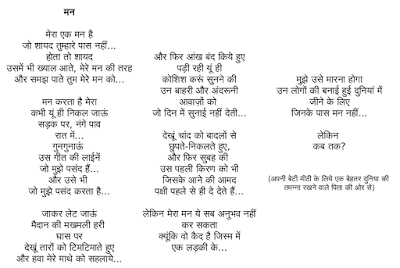 मन
मेरा एक मन है
जो शायद तुम्हारे पास नहीं...
होता तो शायद
उसमें भी ख्याल आते, मेरे मन की तरह
और समझ पाते तुम मेरे मन को...
मन करता है मेरा
कभी यूं ही निकल जाऊं
सड़क पर, नंगे पाव
रात में...
गुनगुनाऊं
उस गीत की लाईनें
जो मुझे पसंद हैं...
और उसे भी
जो मुझे पसंद करता है...
जाकर लेट जाऊं
मैदान की मखमली हरी
घास पर
देखूं तारों को टिमटिमाते हुए
और हवा मेरे माथे को सहलाये...
और फिर आंख बंद किये हुए
पड़ी रही यूं ही
कोशिश करूं सुनने की
उन बाहरी और अंदरूनी
आवाज़ों को
जो दिन में सुनाई नहीं देती...
देखूं चांद को बादलों से
छुपते-निकलते हुए,
और फिर सुबह की
उस पहली किरण को भी
जिसके आने की आमद
पक्षी पहले से ही दे देते हैं...
लेकिन मेरा मन ये सब अनुभव नहीं
कर सकता
क्यूंकि वो कैद है जिस्म में
एक लड़की के...
मुझे उसे मारना होगा
उन लोगों की बनाई हुई दुनियां में
जीने के लिए
जिनके पास मन नहीं...
लेकिन
कब तक?
(अपनी बेटी मीठी के लिये एक बेहतर दुनिया की
तमन्ना रखने वाले पिता की ओर से)